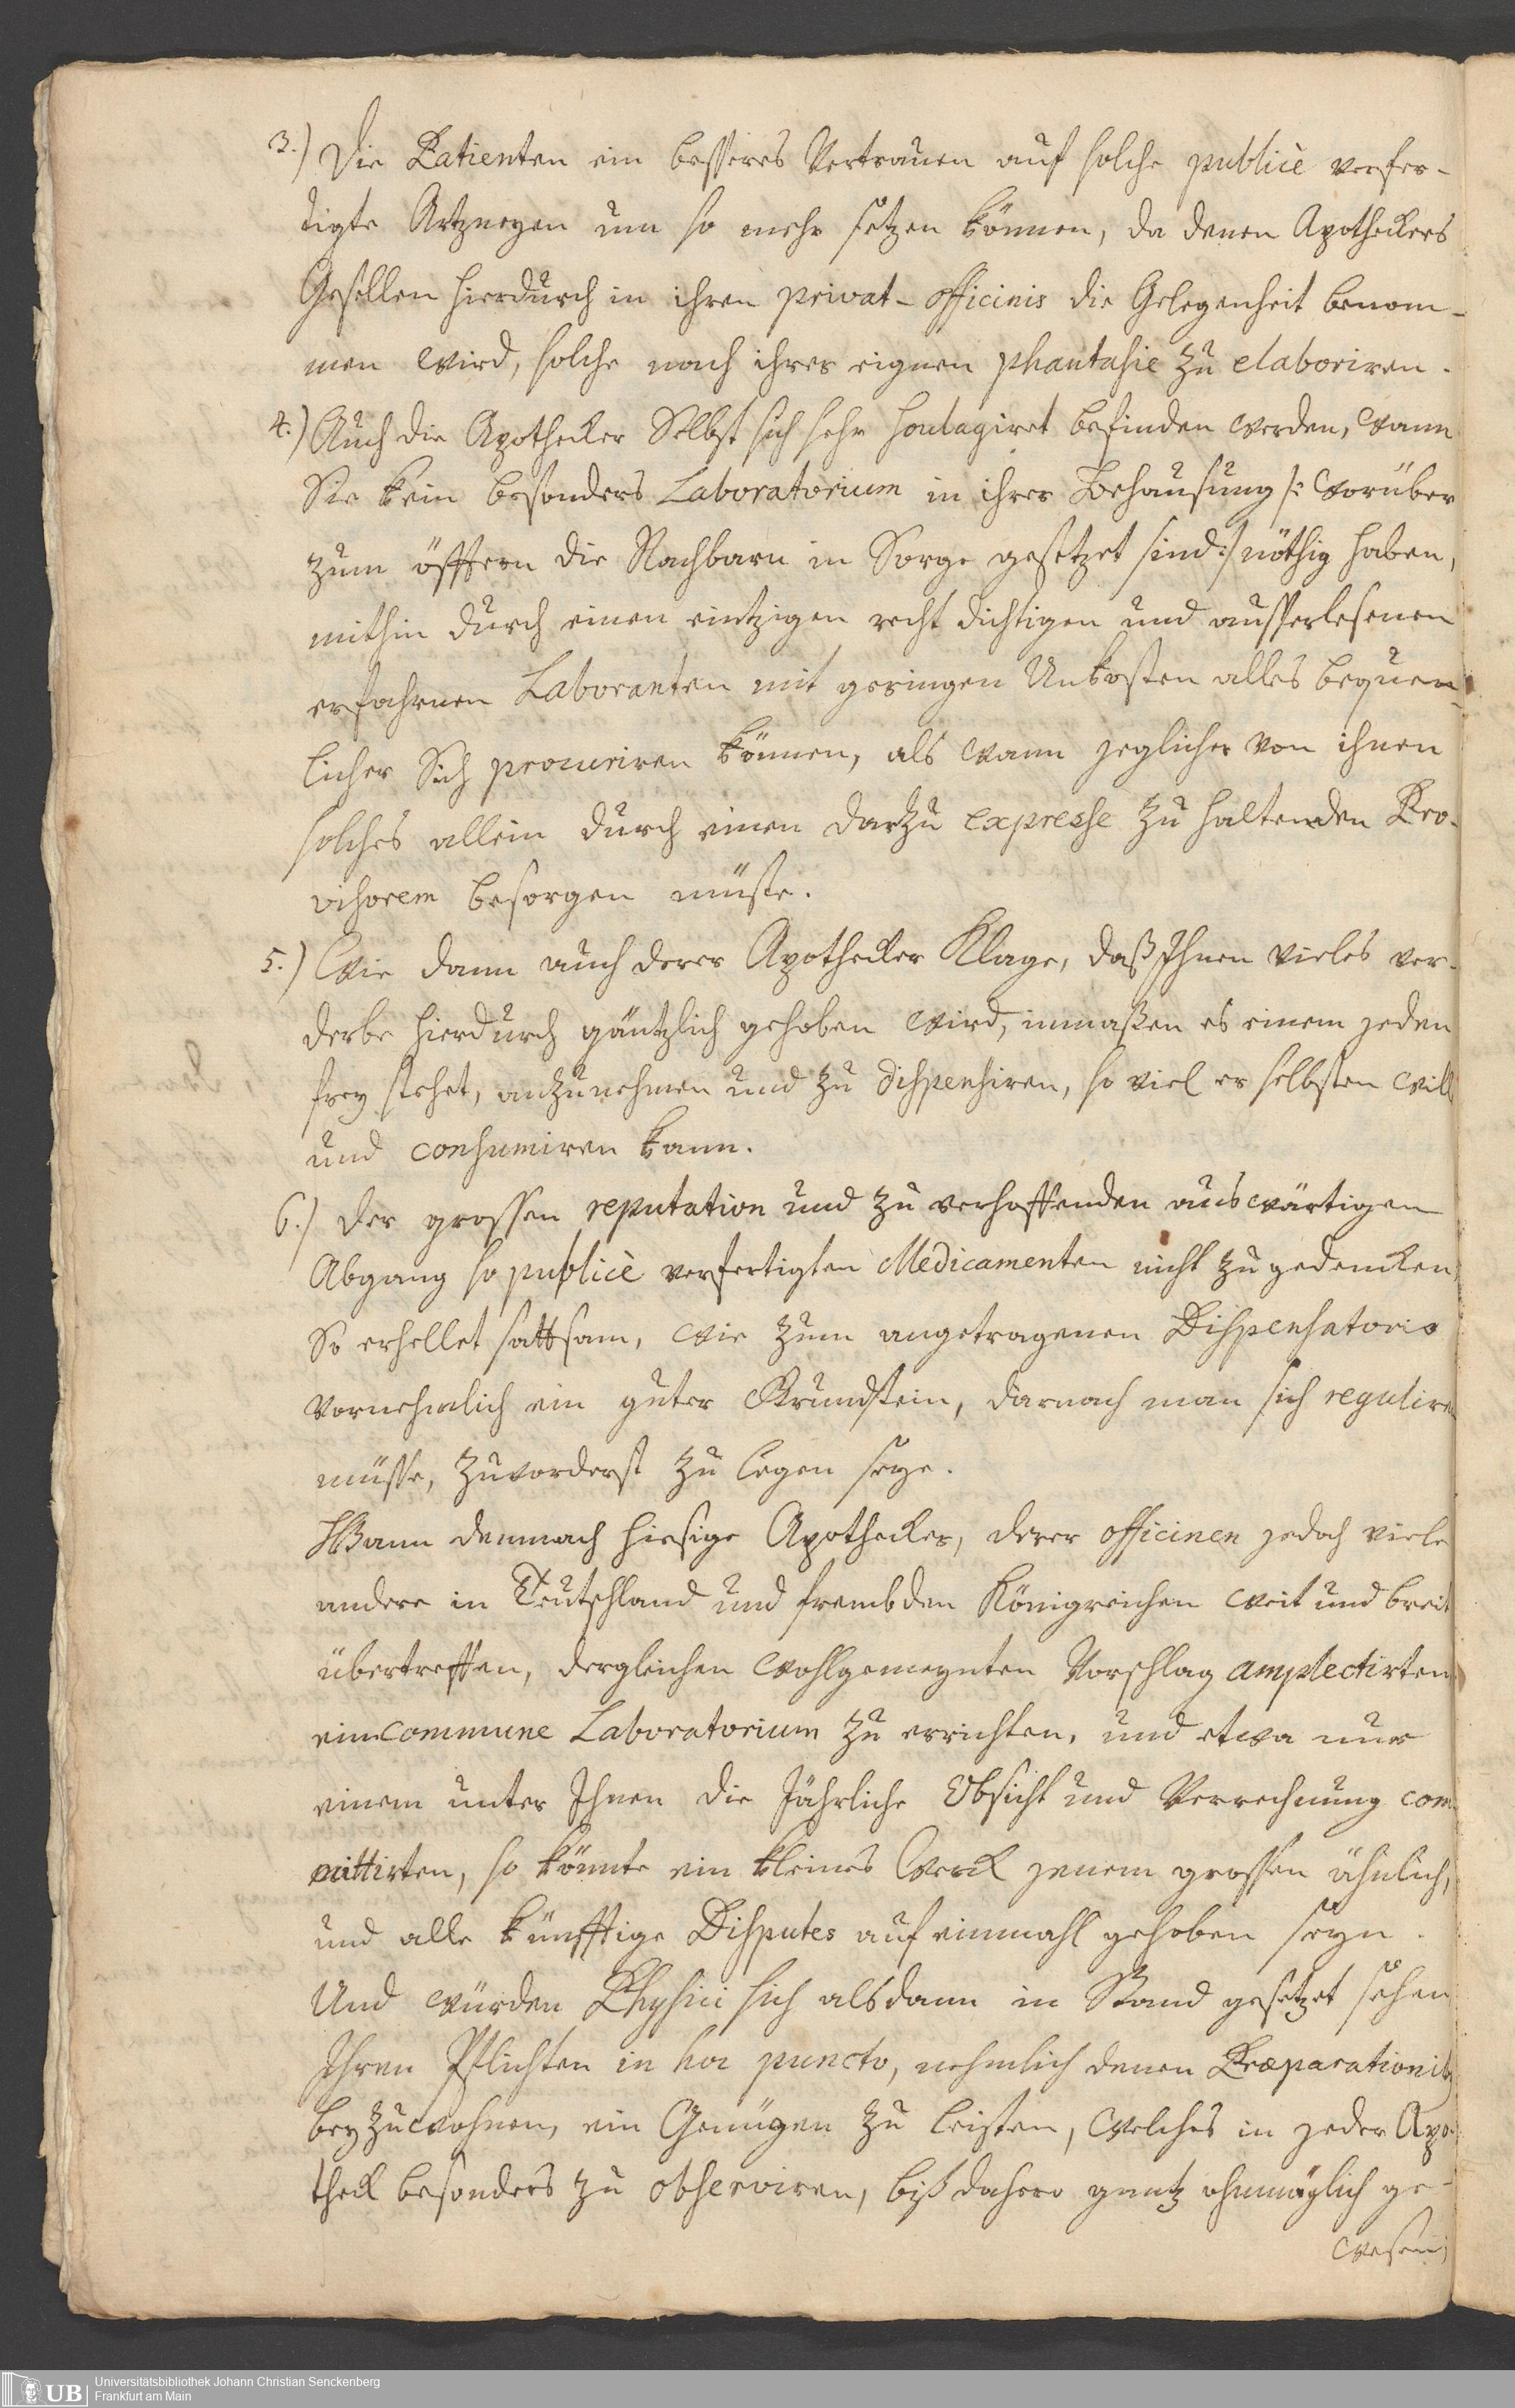 3.) Die Patienten ein besseres Vertrauen auf solche publicè verfer-
tigte Artzneyen um so mehr setzen können, da denen Apotheckers
Gesellen hierdurch in ihren privat-officinis die Gelegenheit benom-
men wird, solche nach ihrer eignen phantasie zu elaboriren.
4.) Auch die Apothecker Selbst sich sehr soulagiret befinden werden, wann
Sie kein besonders Laboratorium in ihrer Behausung /: worüber
zum öfftern die Nachbarn in Sorge gesetzet sind :/ nöthig haben,
mithin durch einen eintzigen recht dichtigen und ausserlesenen
erfahrnen Laboranten mit geringen Unkosten alles bequem-
licher Sich procuriren können, als wann jeglicher von ihnen
solches allein durch einen darzu expresse zu haltenden Pro-
visorem besorgen müste.
5.) Wie dann auch derer Apothecker Klage, daß Ihnen vieles ver-
derbe hierdurch gäntzlich gehoben wird, inmaßen es einem jeden
frey stehet, anzunehmen und zu dispensiren, so viel er selbsten will
und consumiren kann.
6.) der grossen reputation und zu verhoffenden auswärtigen
Abgang so publicè verfertigten Medicamenten nicht zu gedencken,
So erhellet sattsam, wie zum angetragenen Dispensatorio
vornehmlich ein guter Grundstein, darnach man sich reguliren
müsse, zuvorderst zu legen seye.
Wann demnach hiesige Apothecker, derer officinen jedoch viele
andere in Teutschland und frembden Königreichen weit und breit
übertreffen, dergleichen wohlgemeynten Vorschlag amplectirten
ein commune Laboratorium zu errichten, und etwa nur
einem unter Ihnen die Jährliche Obsicht und Verrechnung com-
mittirten, so könnte ein kleines Werck jenem grossen ähnlich,
und alle künfftige Disputes auf einmahl gehoben seyn.
Und würden Physici sich alsdann in Stand gesetzet sehen
Ihren Pflichten in hoc puncto, nehmlich denen Præparationib9
beyzuwohnen, ein Genügen zu leisten, welches in jeder Apo-
theck besonders zu observiren, biß dahero gantz ohnmöglich ge-
wesen;
UB
Universitätsbibliothek Johann Christian Senckenberg
Frankfurt am Main